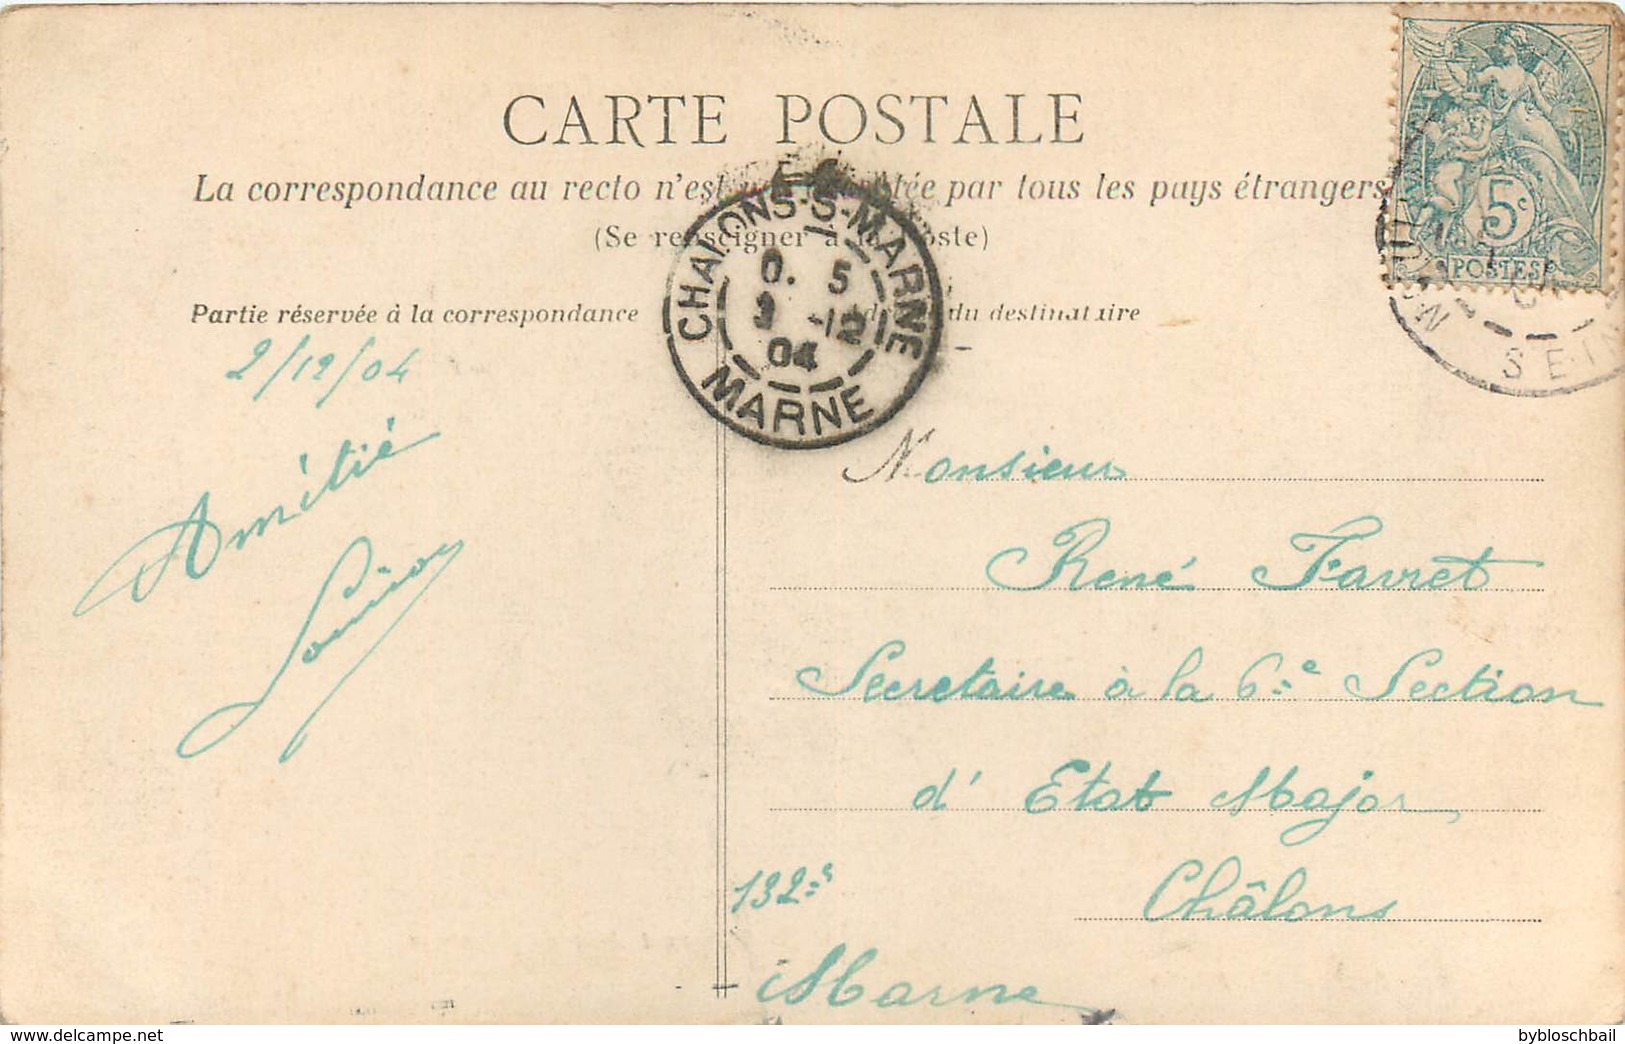 CARTE POSTALE
La correspondance au recto n'est pas acceptée par tous les pays étrangers
(Se renseigner à la Poste)
Partie réservée à la correspondance
du destinataire
CHALONS-S-MARNE
0. 5
3 -12
04
MARNE
FRANÇAISE
5c
POSTES
SEINE
2/12/04
Amitié
Monsieur
René Favret
Secretaire à la 6e Section
d'Etat Major
132=s
Châlons
Marne
delcampe.net
bybloschbail